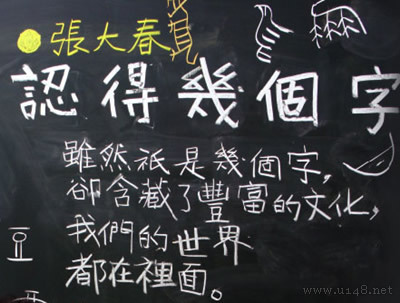 張大春
認得幾個字
雖然祇是幾個字，
卻含藏了豐富的文化，
我們的世界
都在裡面。
www.u148.net